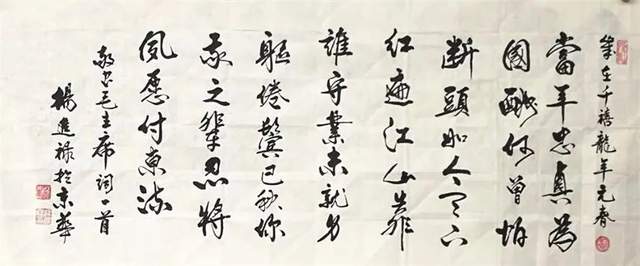 歲在千禧龍年元春
當年忠真為
國酬何曾怕
斷頭如今天下
紅遍江山靠
誰守業未就身
軀倦鬢已秋你
我之輩忍將
夙愿付東流
敬书毛主席詞一首
楊進禄於京華